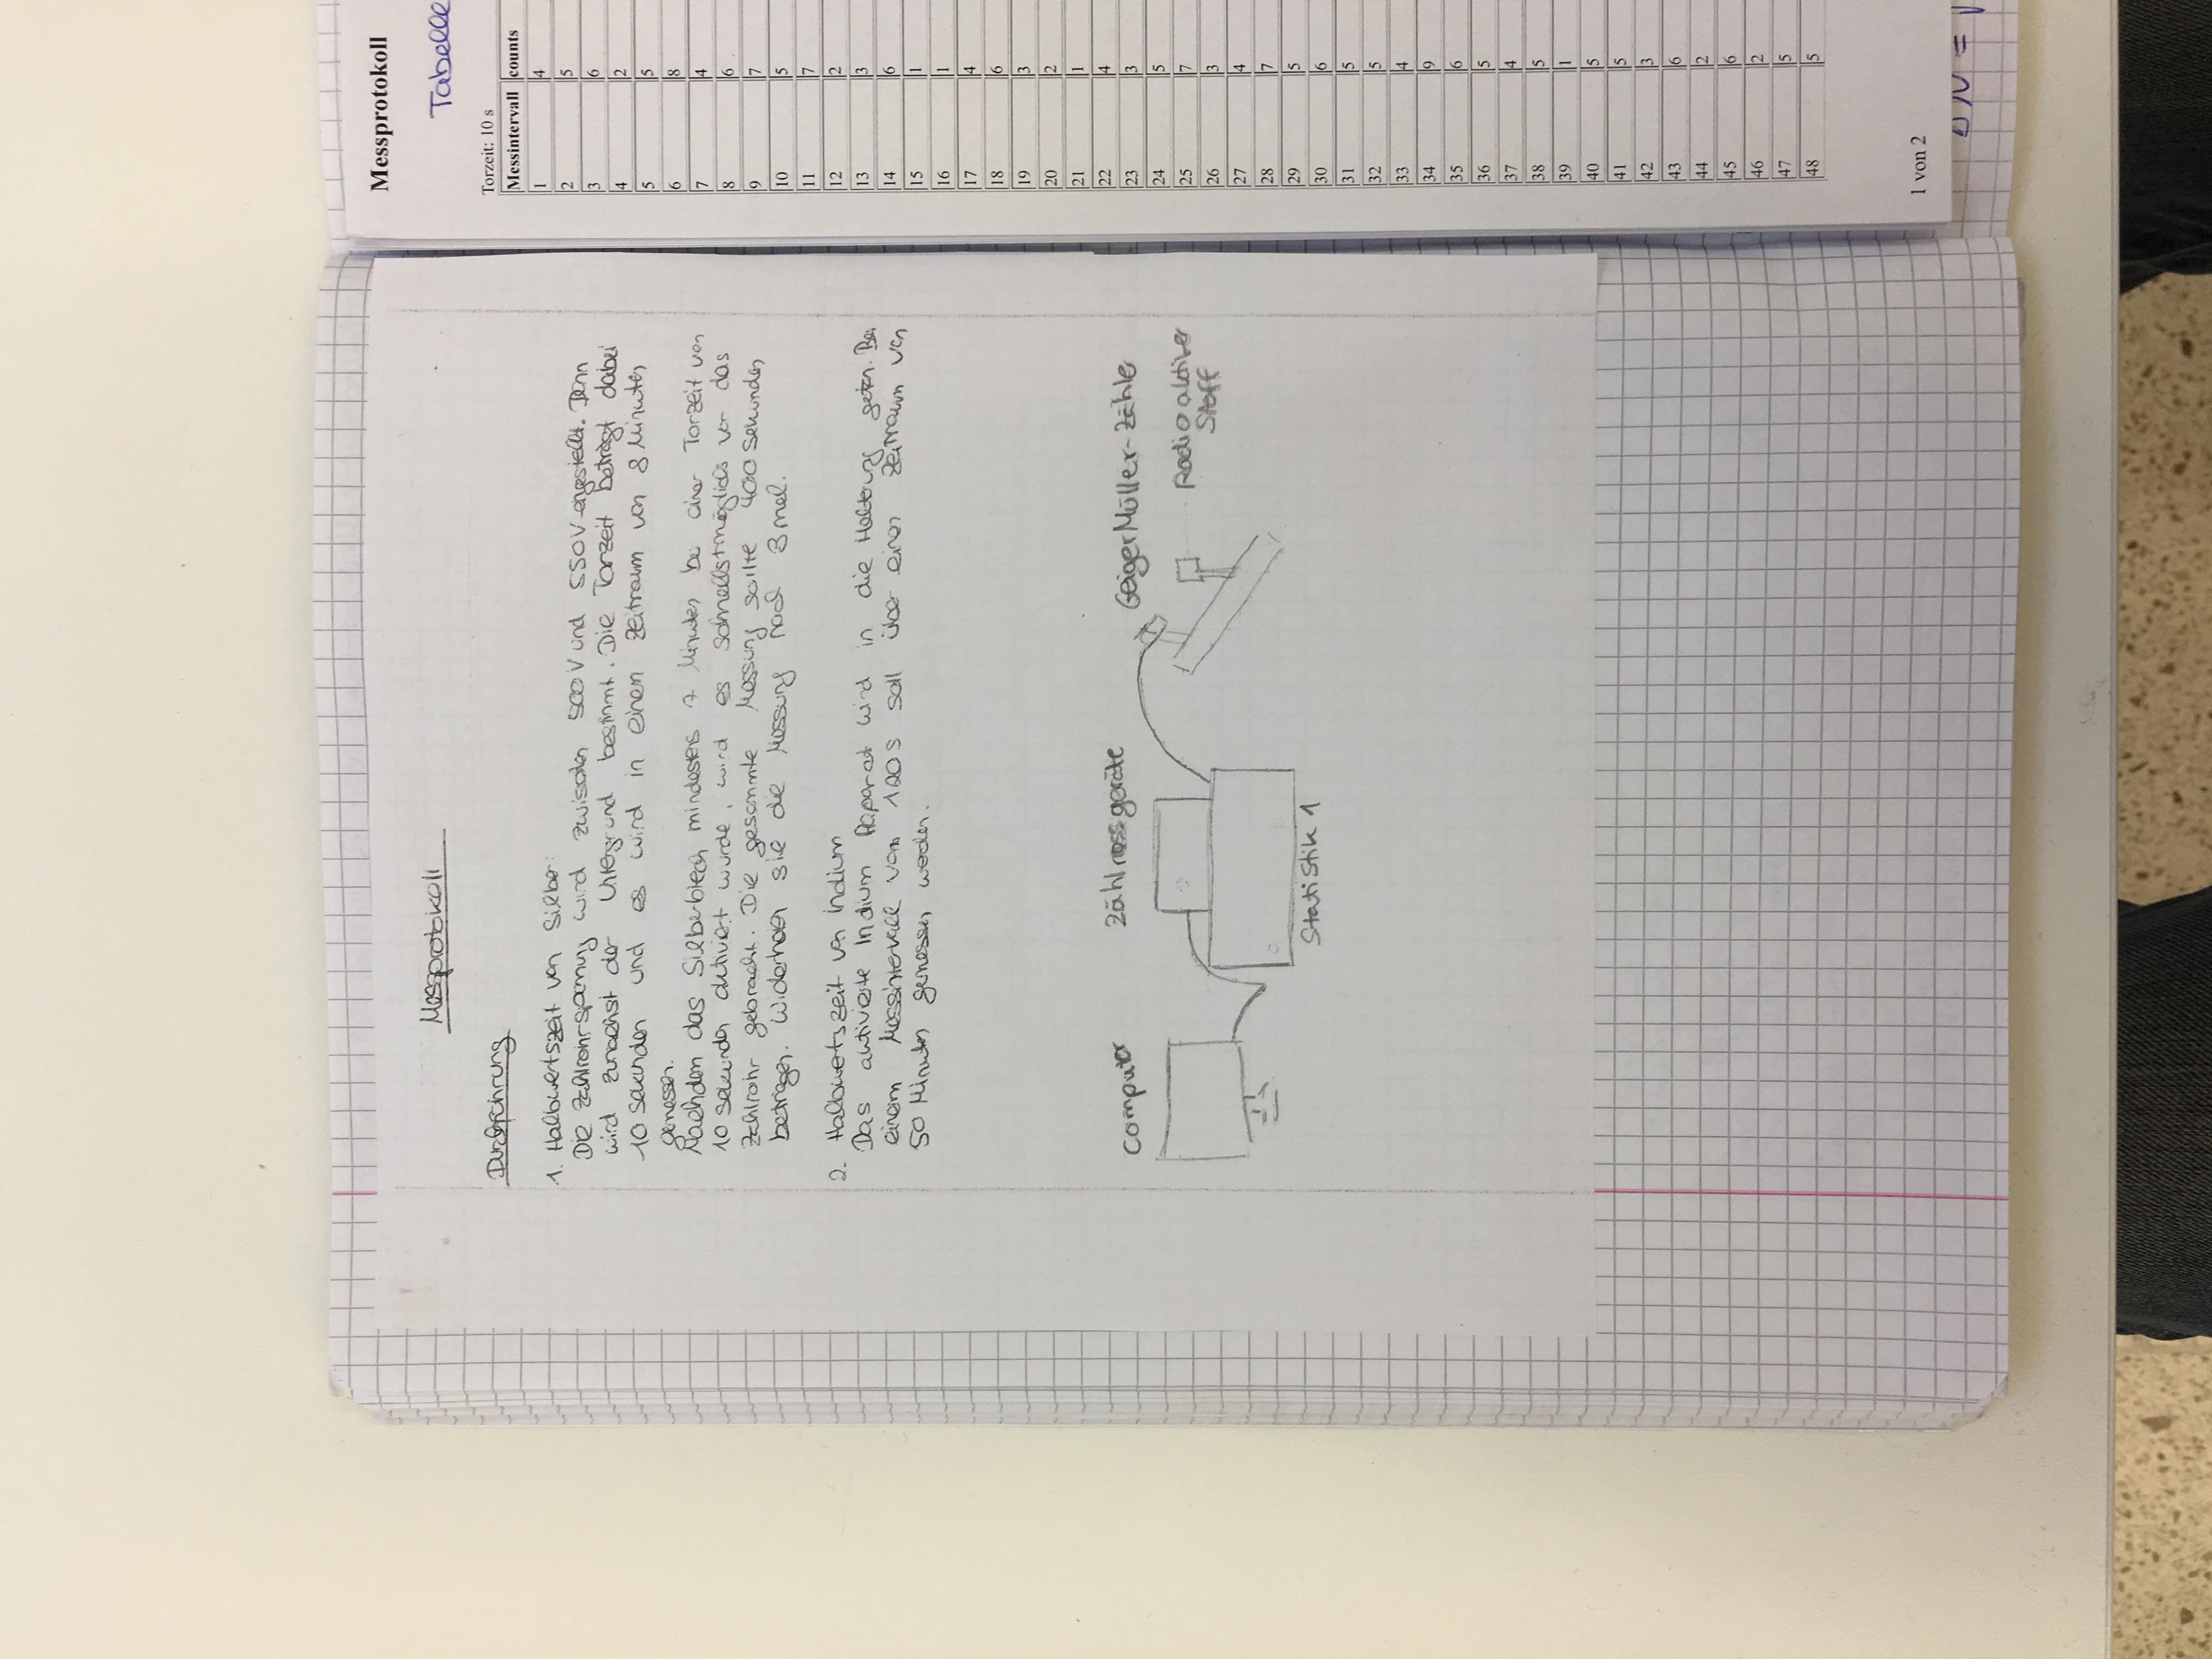 Messprotokoll
Durchführung
1. Halbwertszeit von Silber:
Die Zählrohrspannung wird zwischen 500 V und 550 V eingestellt. Dann
wird zunächst der Untergrund bestimmt. Die Torzeit beträgt dabei
10 Sekunden und es wird in einem Zeitraum von 8 Minuten
gemessen.
Nachdem das Silberblech mindestens 7 Minuten bei einer Torzeit von
10 Sekunden aktiviert wurde, wird es schnellstmöglichs vor das
Zählrohr gebracht. Die gesammte Messung sollte 400 Sekunden
betragen. Widerholen sie die Messung noch 3 mal.
2. Halbwertszeit von Indium
Das aktivierte Indium Päparat wird in die Halterung getan. Bei
einem Messintervall vom 120 s soll über einen Zeitraum von
50 Minuten gemessen werden.
Computer
Zählmessgeräte
GeigerMüller-Zähler
Radioaktiver
Stoff
Statistik 1
Messprotokoll
Tabelle
Torzeit: 10 s
Messintervall counts
1 4
2 5
3 6
4 2
5 5
6 8
7 4
8 6
9 7
10 5
11 7
12 2
13 3
14 6
15 1
16 1
17 4
18 6
19 3
20 2
21 1
22 4
23 3
24 5
25 7
26 3
27 4
28 7
29 5
30 6
31 5
32 5
33 4
34 9
35 6
36 5
37 4
38 5
39 1
40 5
41 5
42 3
43 6
44 2
45 6
46 2
47 5
48 5
1 von 2
ΔN =